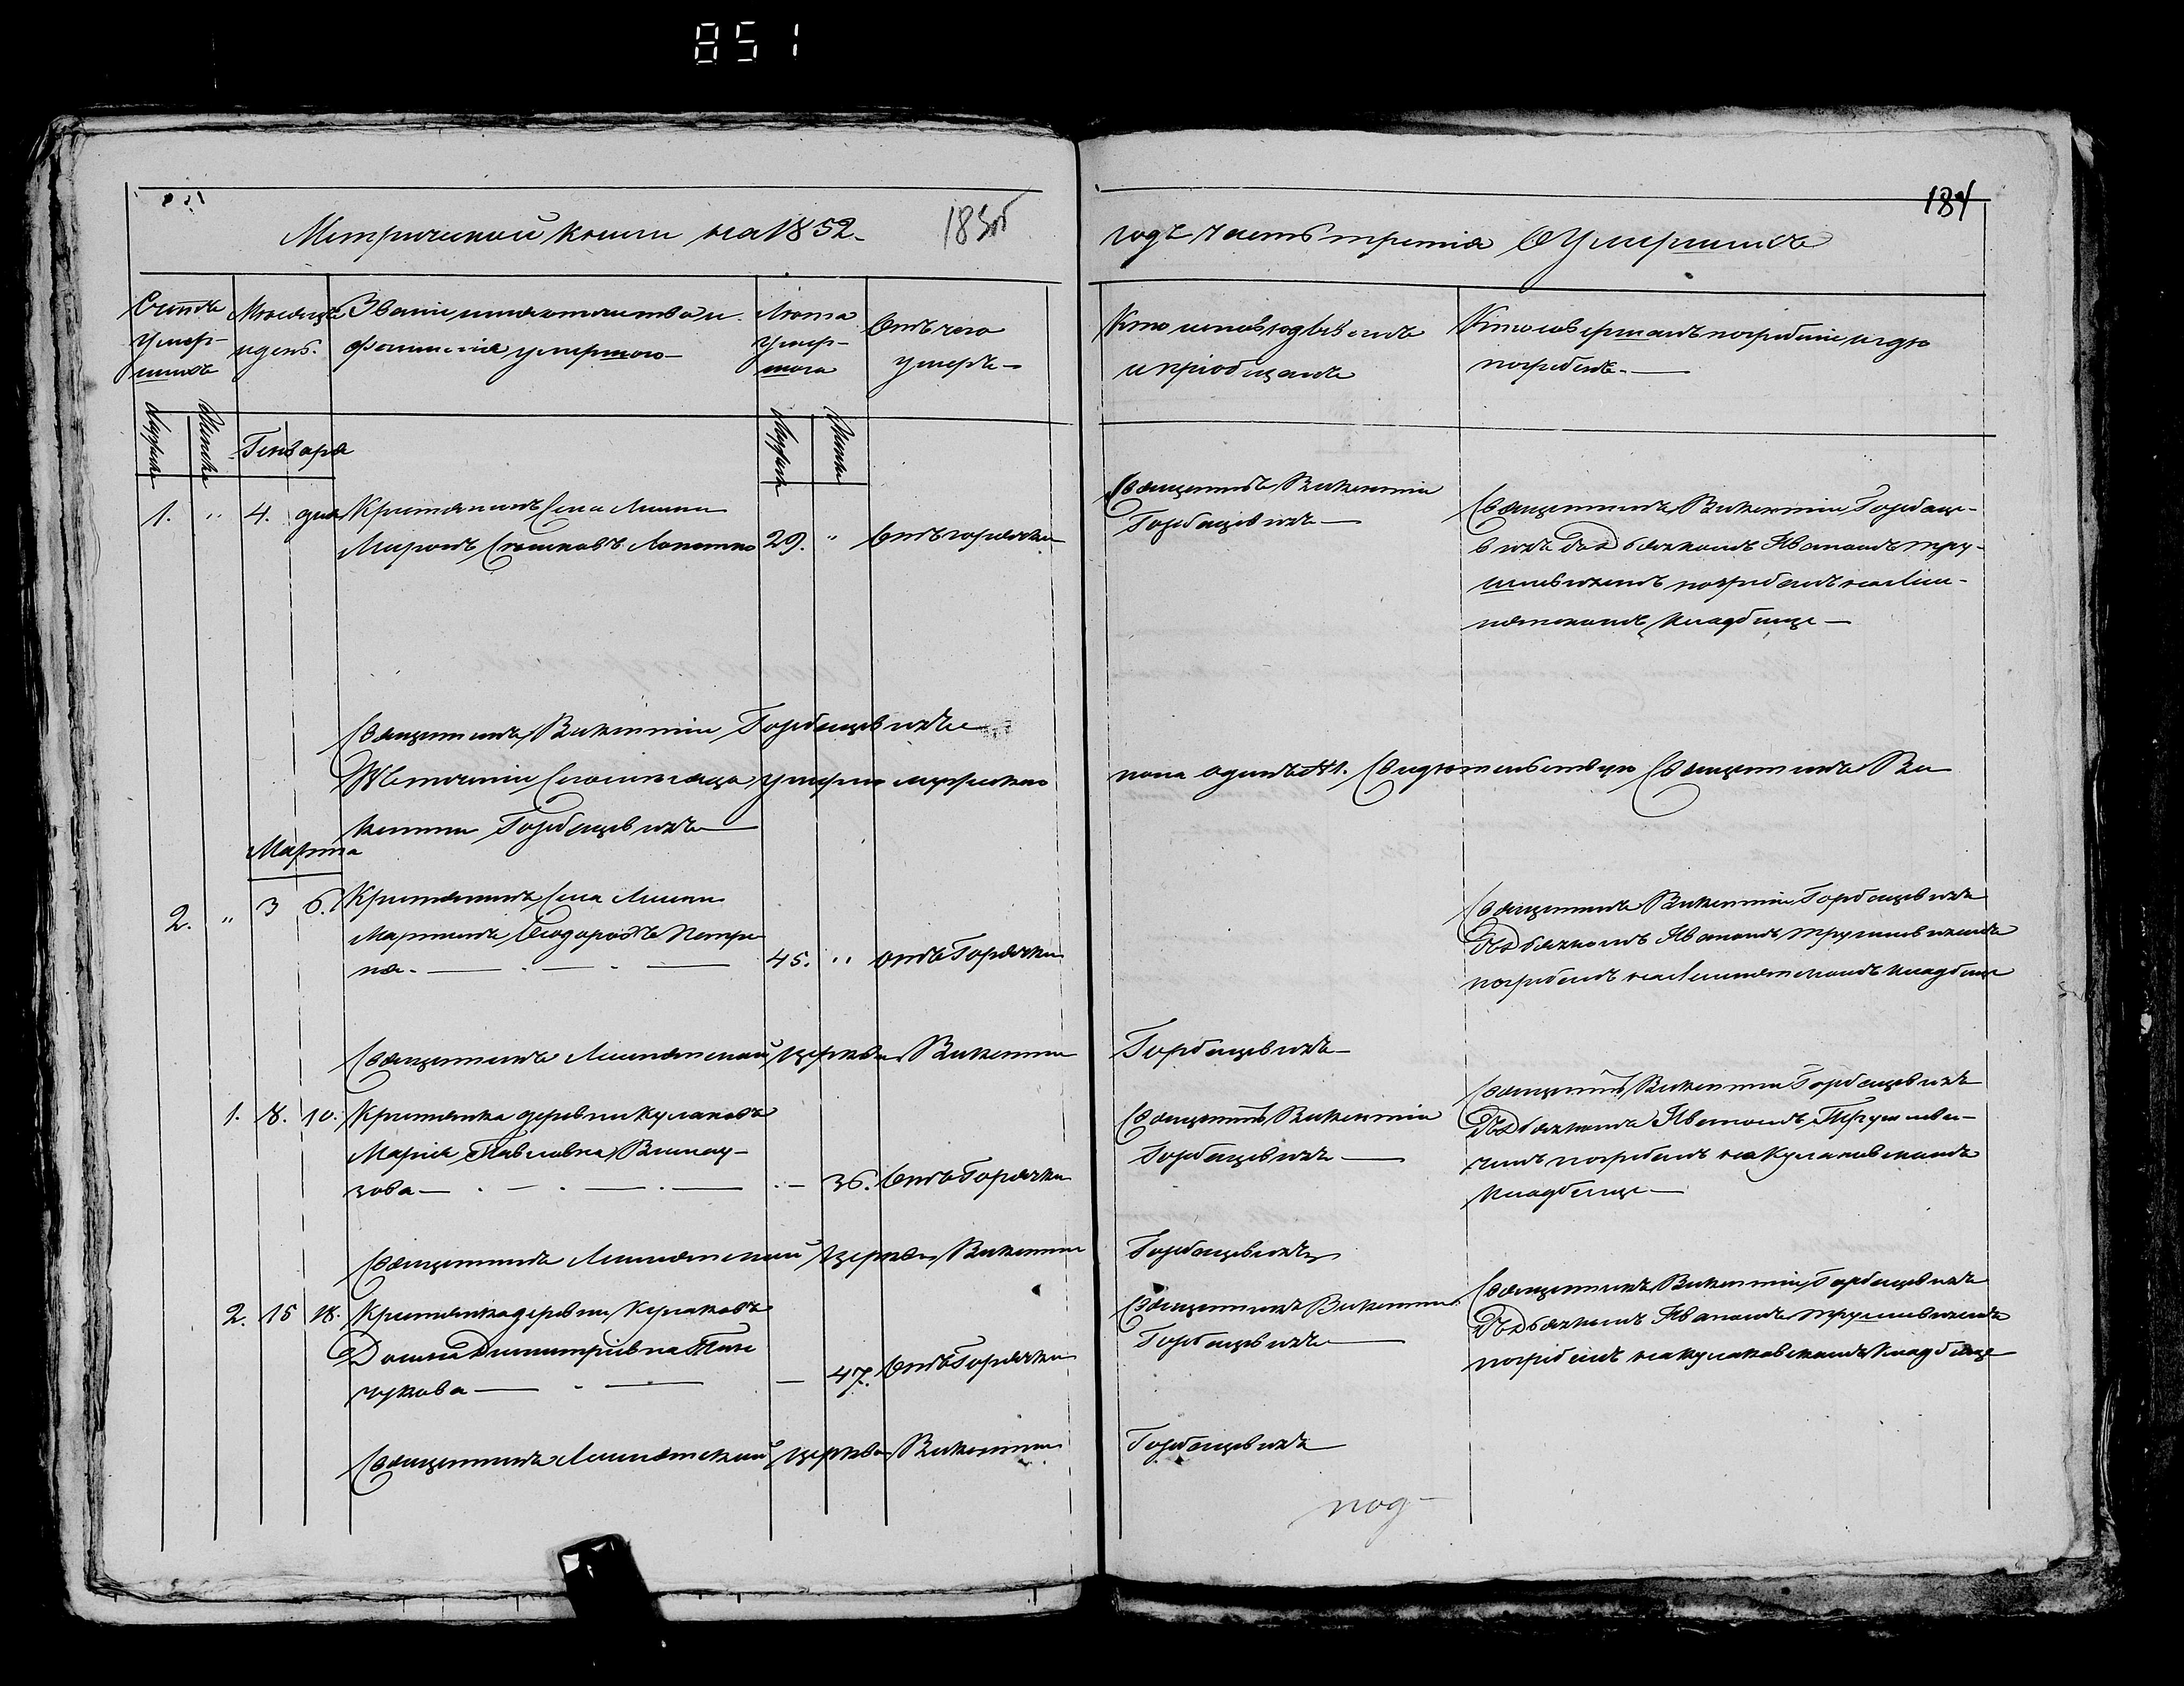 851
Метрической книги на 1852-
183об
годъ часть третія О Умершихъ
184
Счетъ умер-шихъ
Мѣсяцъ и день.
Званіе имя отечество и фамилія умершаго-
Лѣта умер-шаго
Отъ чего умеръ-
Кто исповѣдывалъ и пріобщалъ
Кто совершалъ погребеніе и гдѣ погребенъ.-
Мужска
Женска
Генваря
Мужска
Женска
1. " 4. дня Крестьянинъ Села
Миронъ 29. " Отъ горячки
Священникъ Викентій
Горбацевичъ-
Священникъ Викентій Горбаце-
вичъ съ Дьячкомъ Иваномъ Тру-
севичемъ погребенъ на
кладбище-
Священникъ Викентій Горбацевичъ
умерло мужского
пола одинъ №1. Свидѣтельствую Священникъ Ви
кентій Горбацевичъ
Марта
2. " 3 6. Крестьянинъ Села
Мартинъ Ѳеодоровъ
45. " отъ Горячки
Священникъ Викентій Горбацевичъ
съ Дьячкомъ Иваномъ Трусевичемъ
погребенъ на кладбище
Священникъ церкви Викентій
Горбацевичъ-
1. 8. 10. Крестьянка деревни Кулаковъ
Марія Павловна
зова- - 36. Отъ Горячки
Священникъ Викентій
Горбацевичъ-
Священникъ Викентій Горбацевичъ
съ Дьячкомъ Иваномъ Трусеви-
чемъ погребенъ на Кулаковскомъ
кладбище-
Священникъ церкви Викентій
Горбацевичъ
2. 15 18. Крестьянка деревни Кулаковъ
Димитріевна
чукова- - 47. Отъ Горячки
Священникъ Викентій
Горбацевичъ-
Священникъ Викентій Горбацевичъ
съ Дьячкомъ Иваномъ Трусевичемъ
погребенъ на Кулаковскомъ Кладбище
Священникъ церкви Викентій
Горбацевичъ
под-